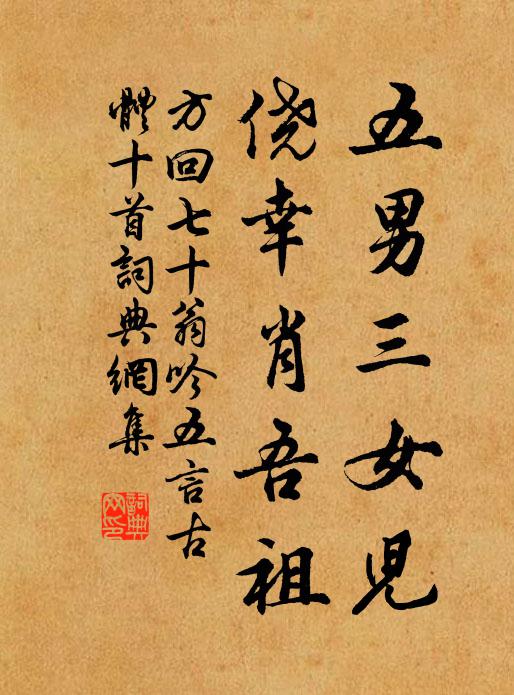 五男三女兒
侥幸肖吾祖
方回七十翁吟五言古
體十首詞典網集
詞典網印